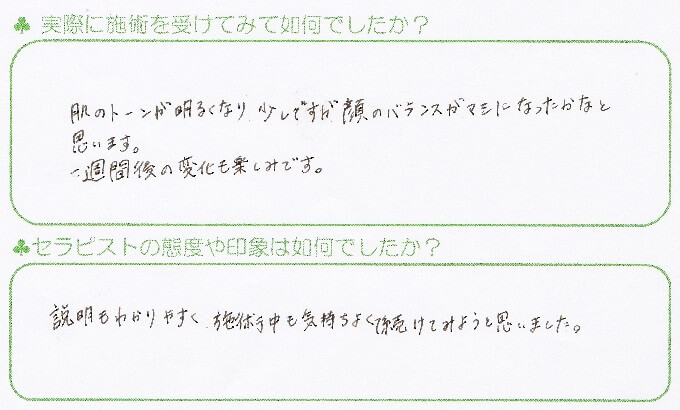 ♣ 実際に施術を受けてみて如何でしたか？
肌のトーンが明るくなり 少しですが 顔のバランスがマシになったかなと
思います。
一週間後の変化も楽しみです。
♣セラピストの態度や印象は如何でしたか？
説明もわかりやすく、施術中も気持ちよく続けてみようと思いました。